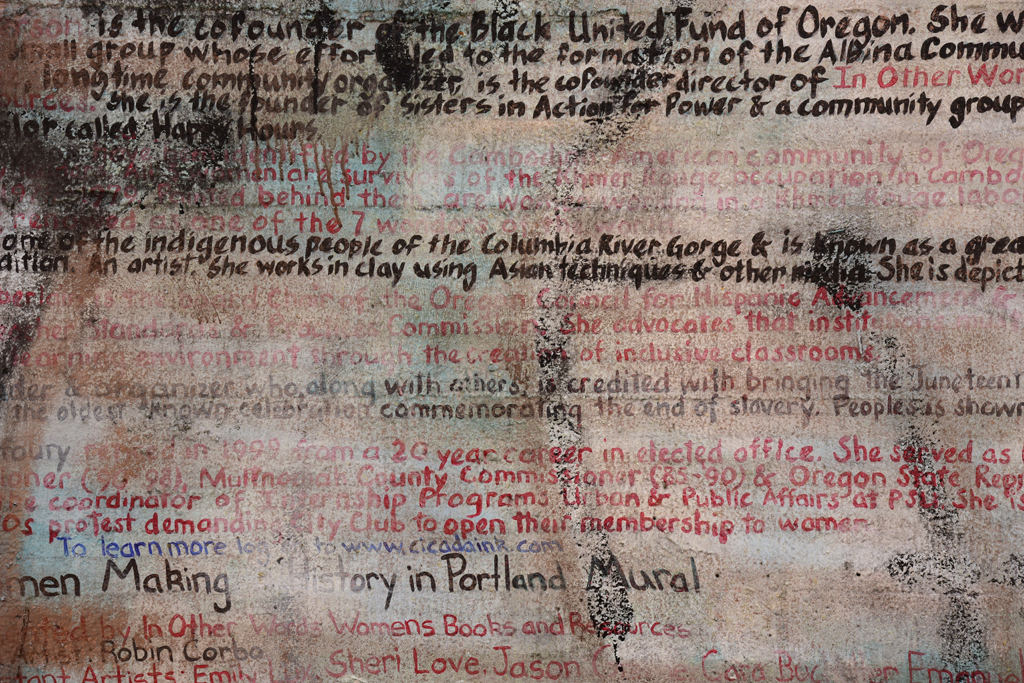 is the cofounder of the Black United Fund of Oregon. She w
mall group whose effor led to the formation of the Albina Commu
longtime community organizer, is the cofounder director of In Other Wor
urces. She is the founder of Sisters in Action for Power & a community group
called Happy Hours.
by the Cambodian American community of Oreg
of the Khmer Rouge occupation in Cambod
behind the are working in a Khmer Rouge labo
one of the 7 w
one of the indigenous people of the Columbia River Gorge & is known as a grea
dition. An artist, she works in clay using Asian techniques & other media. She is depict
the Board Chair of the Oregon Council for Hispanic Advancement &
Standards & Practices Commission. She advocates that instit
learning environment through the creation of inclusive classrooms.
der & organizer who, along with others, is credited with bringing the Juneteent
the oldest known celebration commemorating the end of slavery. Peoples is shown
oury retired in 1999 from a 20 year career in elected office. She served as
oner Multnomah County Commissioner (85-90) & Oregon State Repr
e coordinator of Internship Programs Urban & Public Affairs at PSU. She is
0s protest demanding City Club to open their membership to women
To learn more log to www.cicadaink.com
men Making History in Portland Mural
by In Other Words Womens Books and Resources
Robin Corbo
tant Artists: Emily Sheri Love, Jason Cara Emanuel